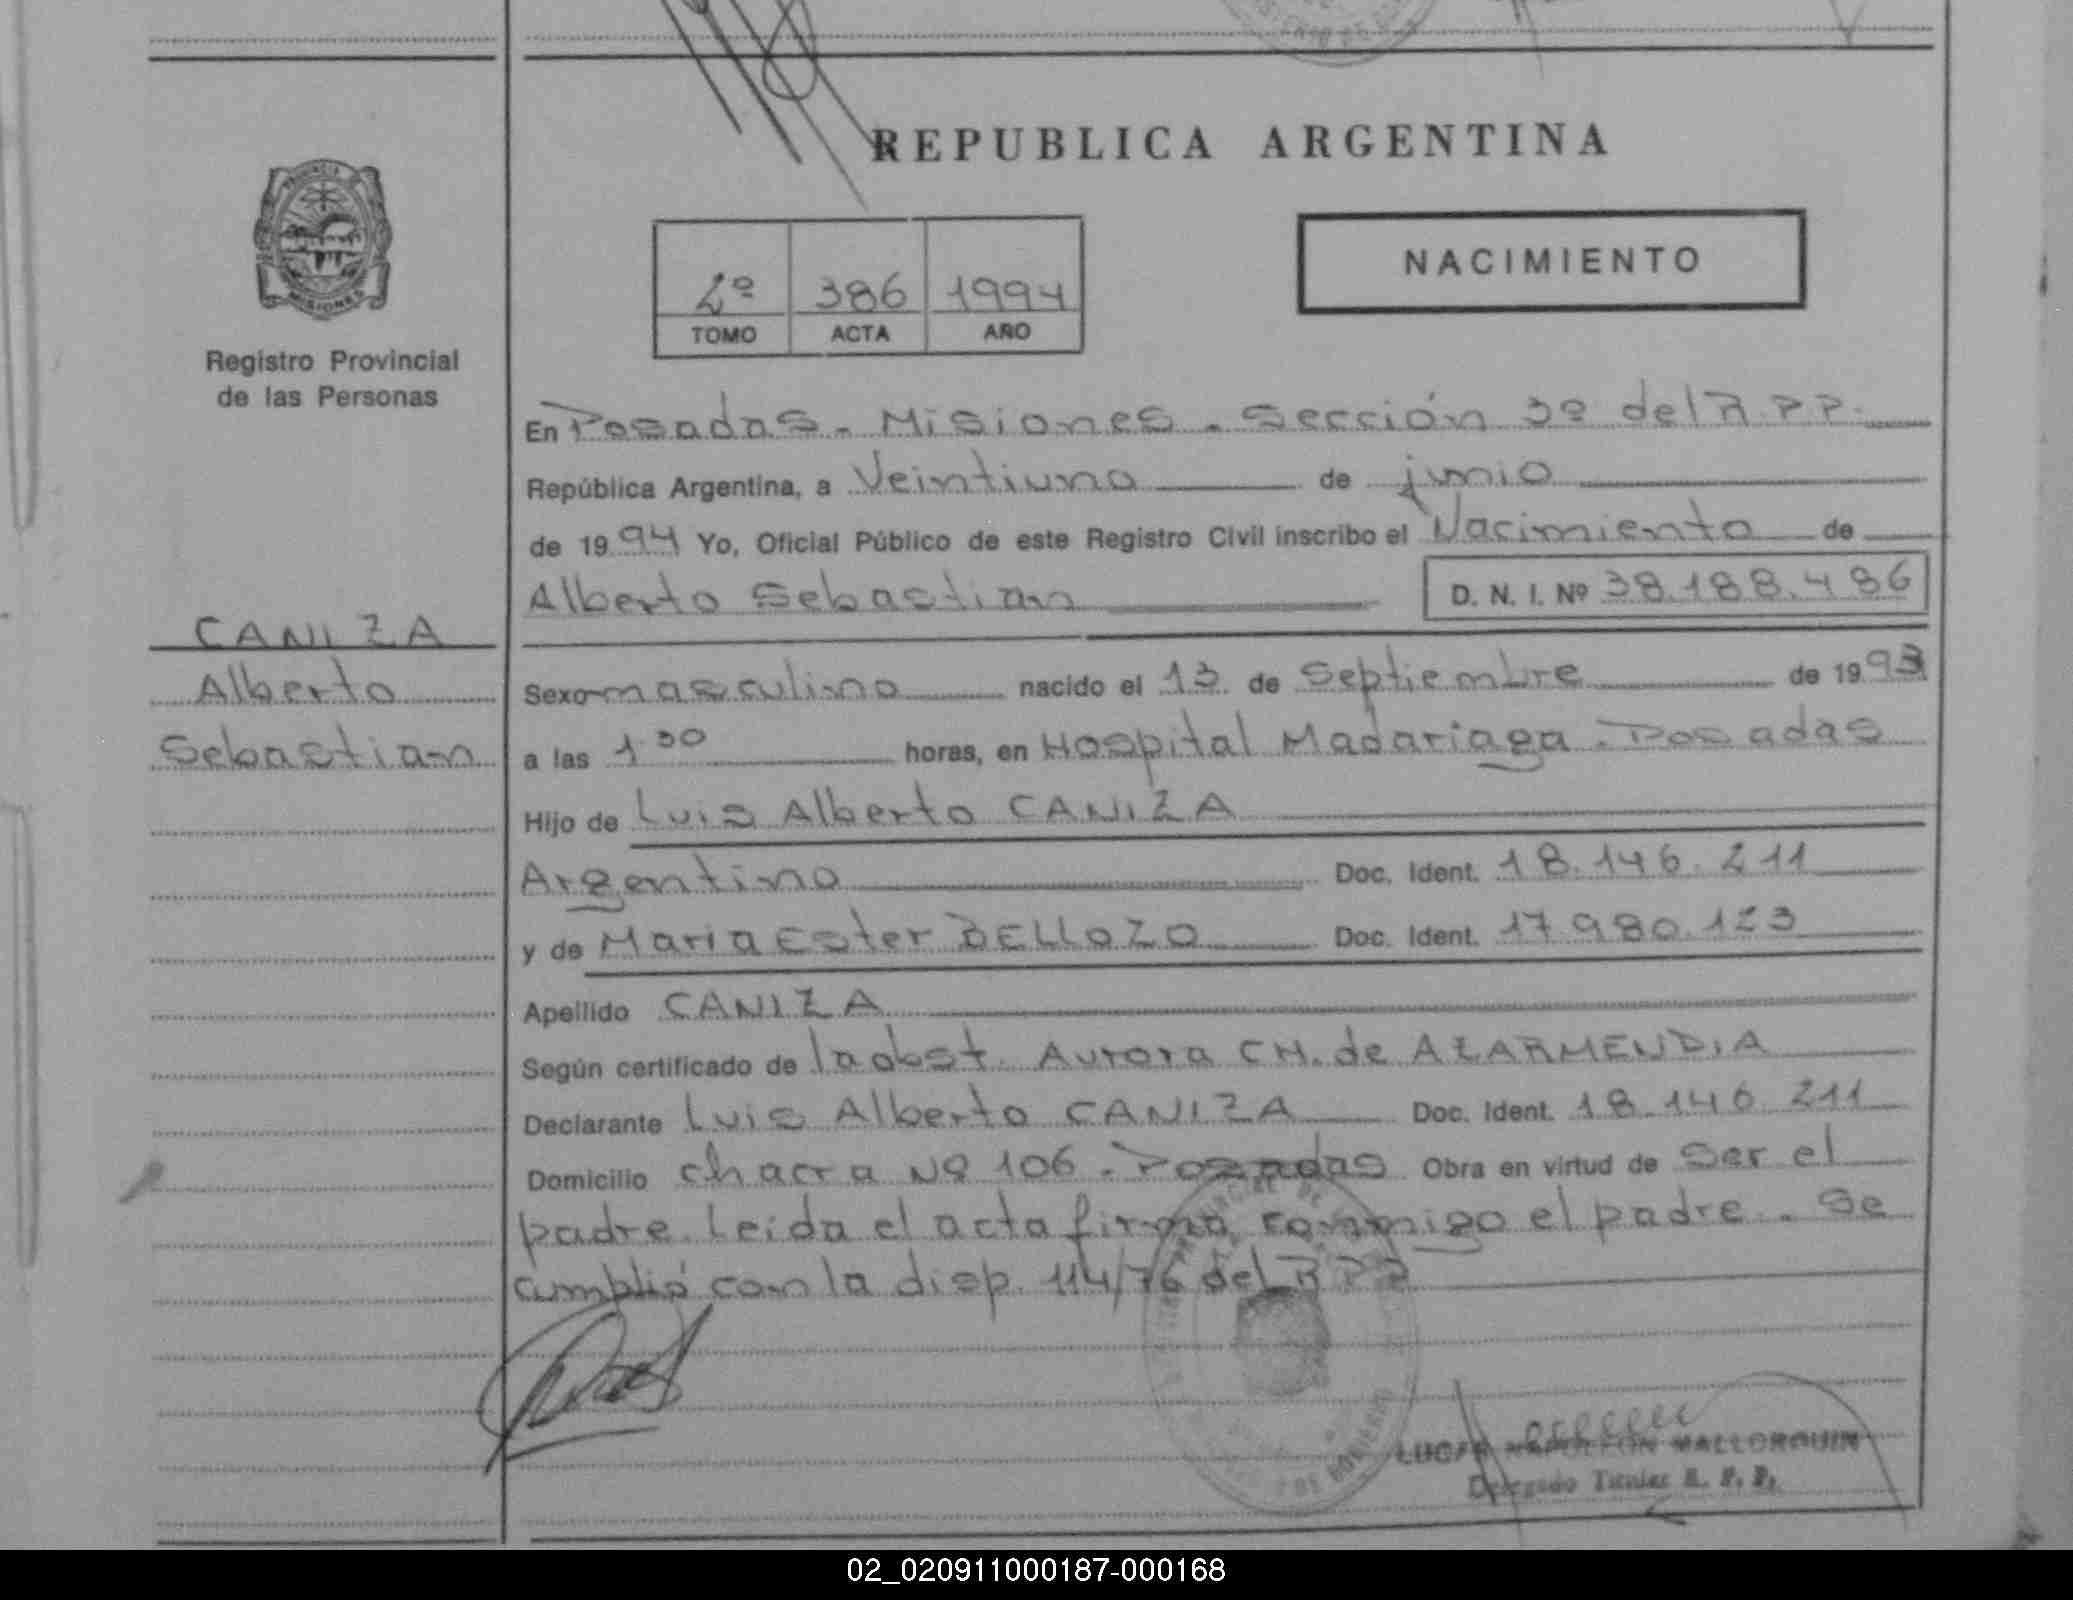 REPUBLICA ARGENTINA
PROVINCIA
MISIONES
Registro Provincial
de las Personas
2º 386 1994
TOMO ACTA AÑO
NACIMIENTO
En Posadas - Misiones - Sección 3º del R.P.P.
República Argentina, a Veintiuno de junio
de 19 94 Yo, Oficial Público de este Registro Civil inscribo el Nacimiento de
Alberto Sebastian D. N. I. Nº 38.188.486
CANIZA
Alberto
Sebastian
Sexo masculino nacido el 13 de Septiembre de 19 93
a las 1 30 horas, en Hospital Madariaga - Posadas
Hijo de Luis Alberto CANIZA
Argentino Doc. Ident. 18.146.211
y de Maria Ester BELLOZO Doc. Ident. 17.980.123
Apellido CANIZA
Según certificado de la obst. Aurora CH. de AZARMENDIA
Declarante Luis Alberto CANIZA Doc. Ident. 18.146.211
Domicilio chacra Nº 106 - Posadas Obra en virtud de Ser el
padre. Leida el acta firma conmigo el padre. Se
cumplió con la disp. 114/76 del R.P.P.
LUCAS NAPOLEON MALLORQUIN
Delegado Titular R. P. P.
02_020911000187-000168